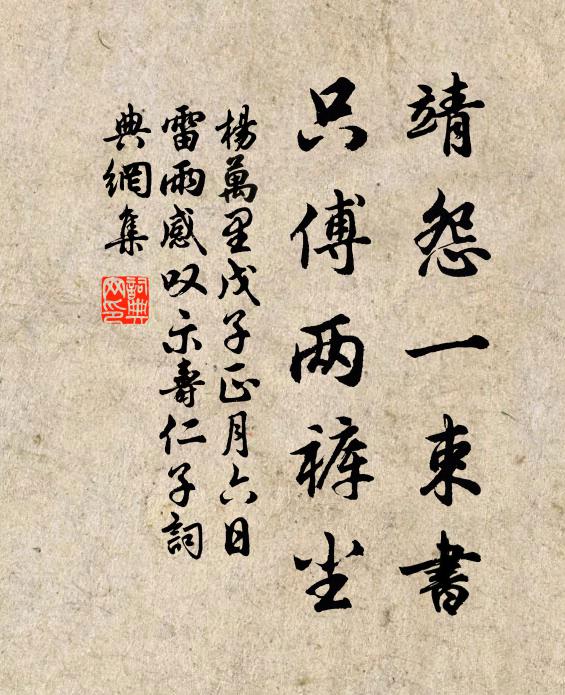 靖怨一束書
只傅两裤尘
楊萬里戊子正月六日
雷雨感叹示壽仁子詞
典網集
詞典网印